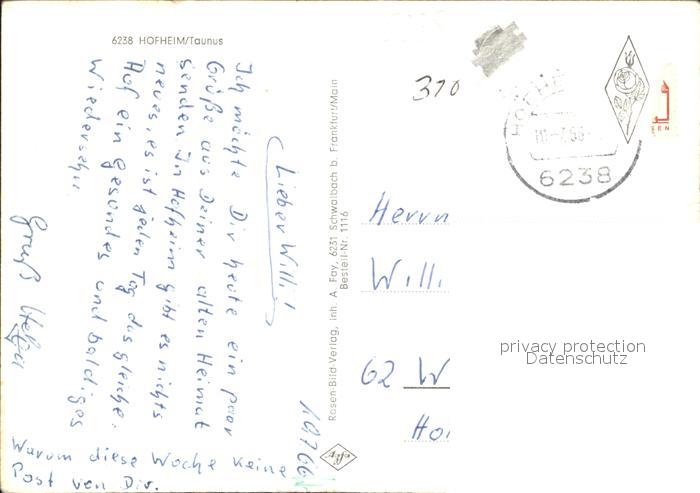 6238 HOFHEIM/Taunus
1.9.7.66
Lieber Willi!
Ich möchte Dir heute ein paar
Grüße aus Deiner alten Heimat
senden. In Hofheim gibt es nichts
neues, es ist jeden Tag das gleiche.
Auf ein gesundes und baldiges
Wiedersehn
Gruß
Warum diese Woche keine
Post von Dir.
Rosen-Bild-Verlag, Inh. A. Fay, 6231 Schwalbach b. Frankfurt/Main
Bestell-Nr. 1116
310
6238
EN
Herrn
Willi
62 W
Ho
privacy protection
Datenschutz